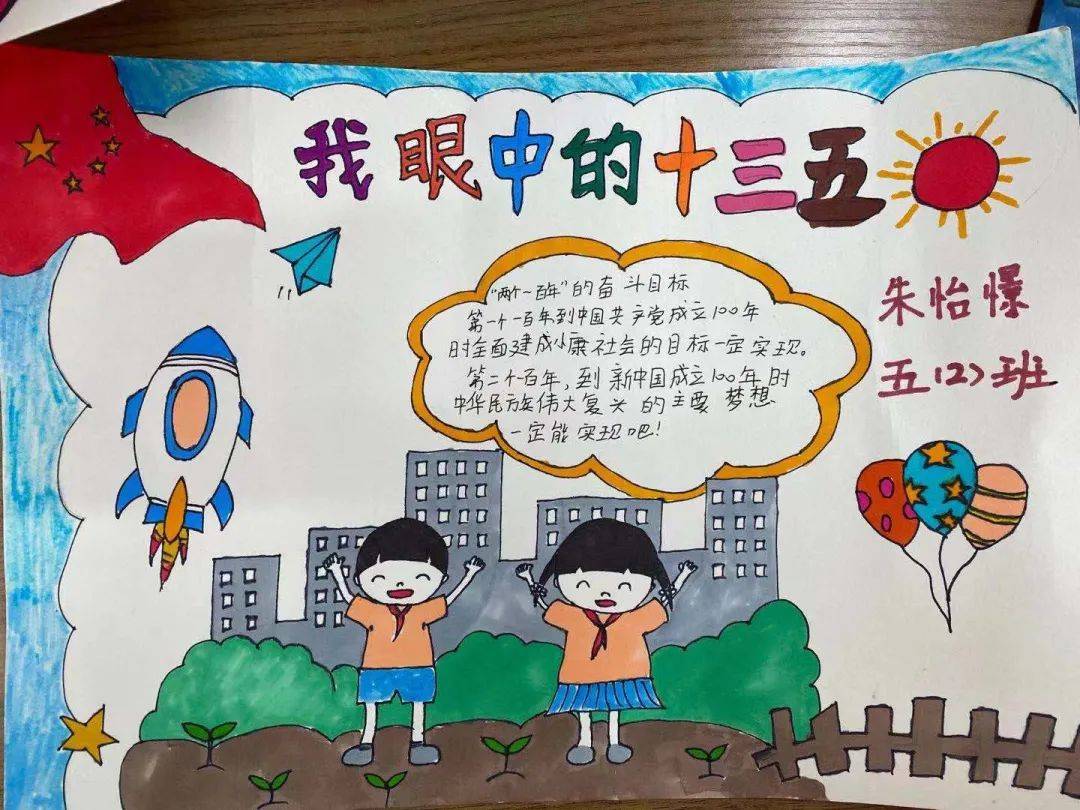 我眼中的十三五
朱怡憬
五(2)班
"两个一百年"的奋斗目标
第一个一百年到中国共产党成立100年
时全面建成小康社会的目标一定实现。
第二个百年,到新中国成立100年时
中华民族伟大复兴的主要梦想
一定能实现吧!